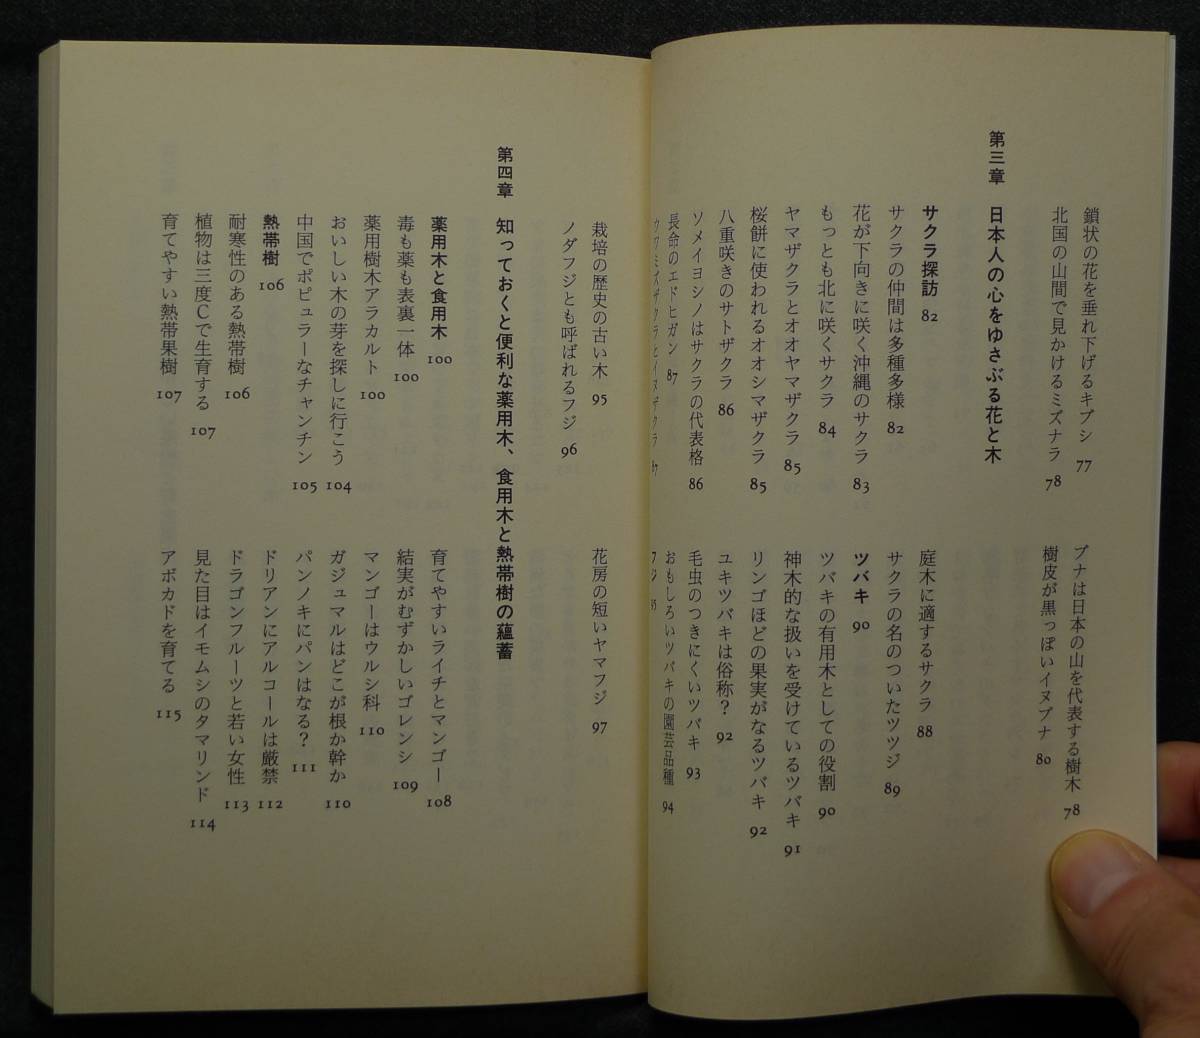 鎖状の花を垂れ下げるキブシ 77
北国の山間で見かけるミズナラ 78
ブナは日本の山を代表する樹木 78
樹皮が黒っぽいイヌブナ 80
第三章 日本人の心をゆさぶる花と木
サクラ探訪 82
サクラの仲間は多種多様 82
花が下向きに咲く沖縄のサクラ 83
もっとも北に咲くサクラ 84
ヤマザクラとオオヤマザクラ 85
桜餅に使われるオオシマザクラ 85
八重咲きのサトザクラ 86
ソメイヨシノはサクラの代表格 86
長命のエドヒガン 87
ウワミズザクラとイヌザクラ 87
庭木に適するサクラ 88
サクラの名のついたツツジ 89
ツバキ 90
ツバキの有用木としての役割 90
神木的な扱いを受けているツバキ 91
リンゴほどの果実がなるツバキ 92
ユキツバキは俗称? 92
毛虫のつきにくいツバキ 93
おもしろいツバキの園芸品種 94
フジ 95
栽培の歴史の古い木 95
ノダフジとも呼ばれるフジ 96
花房の短いヤマフジ 97
第四章 知っておくと便利な薬用木、食用木と熱帯樹の蘊蓄
薬用木と食用木 100
毒も薬も表裏一体 100
薬用樹木アラカルト 100
おいしい木の芽を探しに行こう 104
中国でポピュラーなチャンチン 105
熱帯樹 106
耐寒性のある熱帯樹 106
植物は三度Cで生育する 107
育てやすい熱帯果樹 107
育てやすいライチとマンゴー 108
結実がむずかしいゴレンシ 109
マンゴーはウルシ科 110
ガジュマルはどこが根か幹か 110
パンノキにパンはなる? 111
ドリアンにアルコールは厳禁 112
ドラゴンフルーツと若い女性 113
見た目はイモムシのタマリンド 114
アボカドを育てる 115